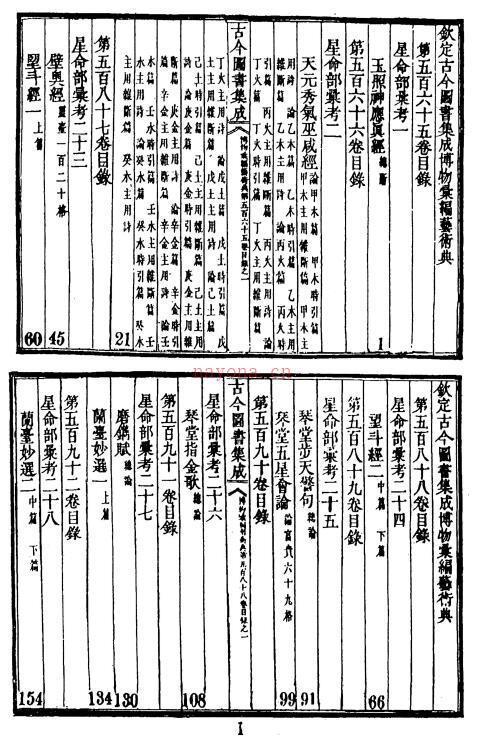 欽定古今圖書集成博物彙編藝術典
第五百六十五卷目錄
星命部彙考一
玉照神應真經 總斷
1
第五百六十六卷目錄
星命部彙考二
天元秀氣巫咸經 論甲木篇 甲木時引篇
甲木主用維斷篇 甲木主
用詩 論乙木篇 乙木時引篇 乙木主用
維斷篇 乙木主用詩 論丙火篇 丙火時
引篇 丙火主用維斷篇 丙火主用詩 論
丁火篇 丁火時引篇 丁火主用維斷篇
古今圖書集成
博物彙編藝術典第五百六十五卷目錄之一
丁火主用詩 論戊土篇 戊土時引篇 戊
土主用維斷篇 戊土主用詩 論己土篇
己土時引篇 己土主用維斷篇 己土主用
詩 論庚金篇 庚金時引篇 庚金主用維
斷篇 庚金主用詩 論辛金篇 辛金時引
篇 辛金主用維斷篇 辛金主用詩 論壬
水篇 壬水時引篇 壬水主用維斷篇 壬
水主用詩 論癸水篇 癸水時引篇 癸水
主用維斷篇 癸水主用詩
21
第五百八十七卷目錄
星命部彙考二十三
壁奧經 靈臺一百二十格
45
望斗經一 上篇
60
欽定古今圖書集成博物彙編藝術典
第五百八十八卷目錄
星命部彙考二十四
望斗經二 中篇 下篇
66
第五百八十九卷目錄
星命部彙考二十五
琴堂步天警句 總論
91
琴堂五星會論 論富貴六十九格
99
第五百九十卷目錄
古今圖書集成
博物彙編藝術典第五百八十八卷目錄之一
星命部彙考二十六
琴堂指金歌 總論
108
第五百九十一卷目錄
星命部彙考二十七
磨鐫賦 總論
130
蘭臺妙選一 上篇
134
第五百九十二卷目錄
星命部彙考二十八
蘭臺妙選二 中篇 下篇
154
nayona.cn
I